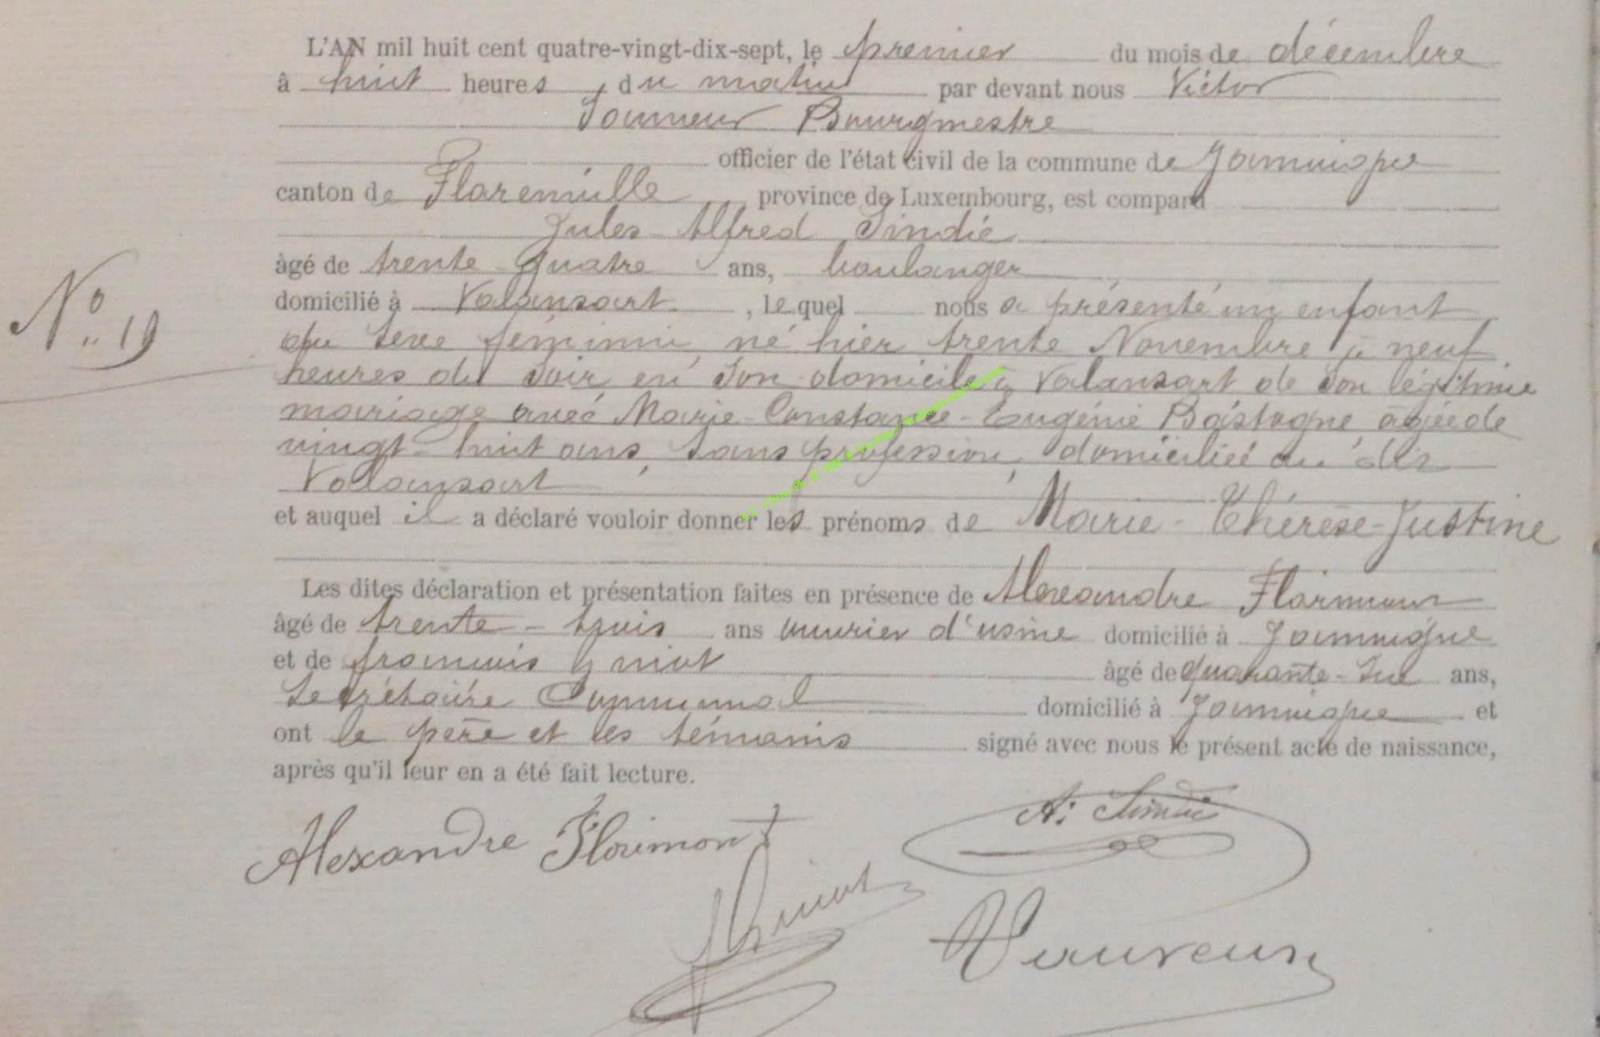 L'AN mil huit cent quatre-vingt-dix-sept, le premier du mois de décembre
à huit heures du matin par devant nous Victor
Bourgmestre
officier de l'état civil de la commune de Jamoigne
canton de Florenville province de Luxembourg, est comparu
Jules Alfred Sindic
âgé de trente quatre ans, boulanger
domicilié à Valansart, lequel nous a présenté un enfant
No 19
du sexe féminin, né hier trente Novembre à neuf
heures du soir en son domicile à Valansart de son légitime
mariage avec Marie-Constance-Eugénie Bastogne, agée de
vingt-huit ans, sans profession, domiciliée au dit
Valansart
et auquel il a déclaré vouloir donner les prénoms de Marie-Thérèse-Justine
Les dites déclaration et présentation faites en présence de Alexandre Florimont
âgé de trente-trois ans ouvrier d'usine domicilié à Jamoigne
et de françois âgé de quarante-six ans,
Secrétaire Communal domicilié à Jamoigne et
ont le père et les témoins signé avec nous le présent acte de naissance,
après qu'il leur en a été fait lecture.
Alexandre Florimont A. Sindic